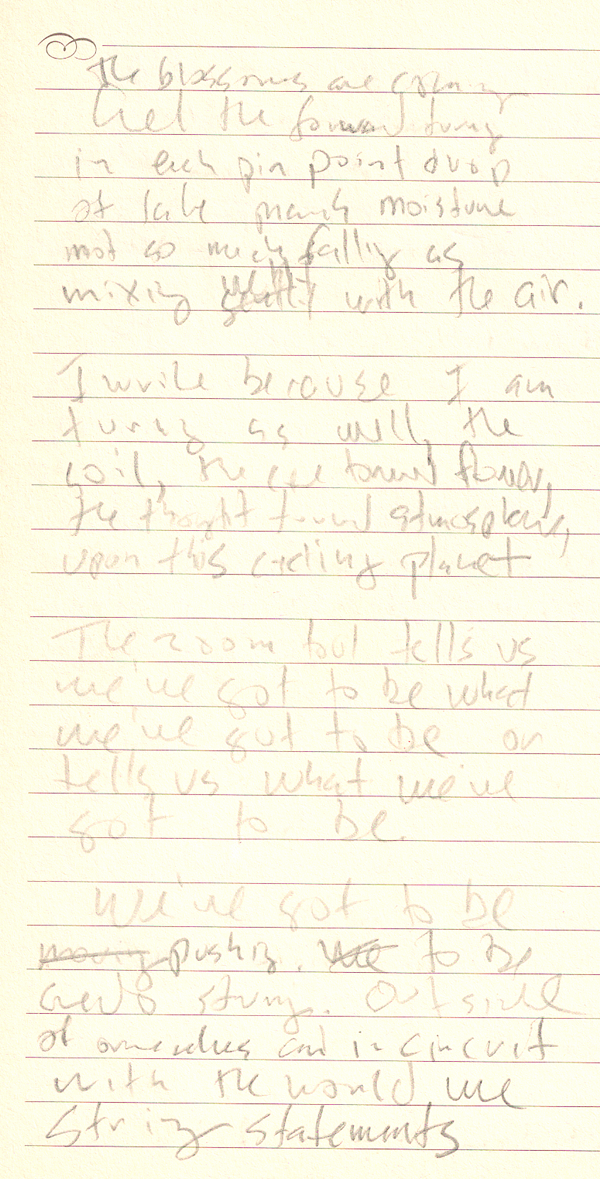 The blossoms are coming
feel the forward turning
in each pin point drop
of late march moisture
not so much falling as
mixing with the air.
I write because I am
turning as well, the
soil, the toward flower,
the thought toward atmosphere,
upon this cycling planet
The room tells us
we've got to be what
we've got to be or
tells us what we've
got to be.
We've got to be
moving pushing. We to be
string. Outside
of ourselves and in circuit
with the world, we
string statements